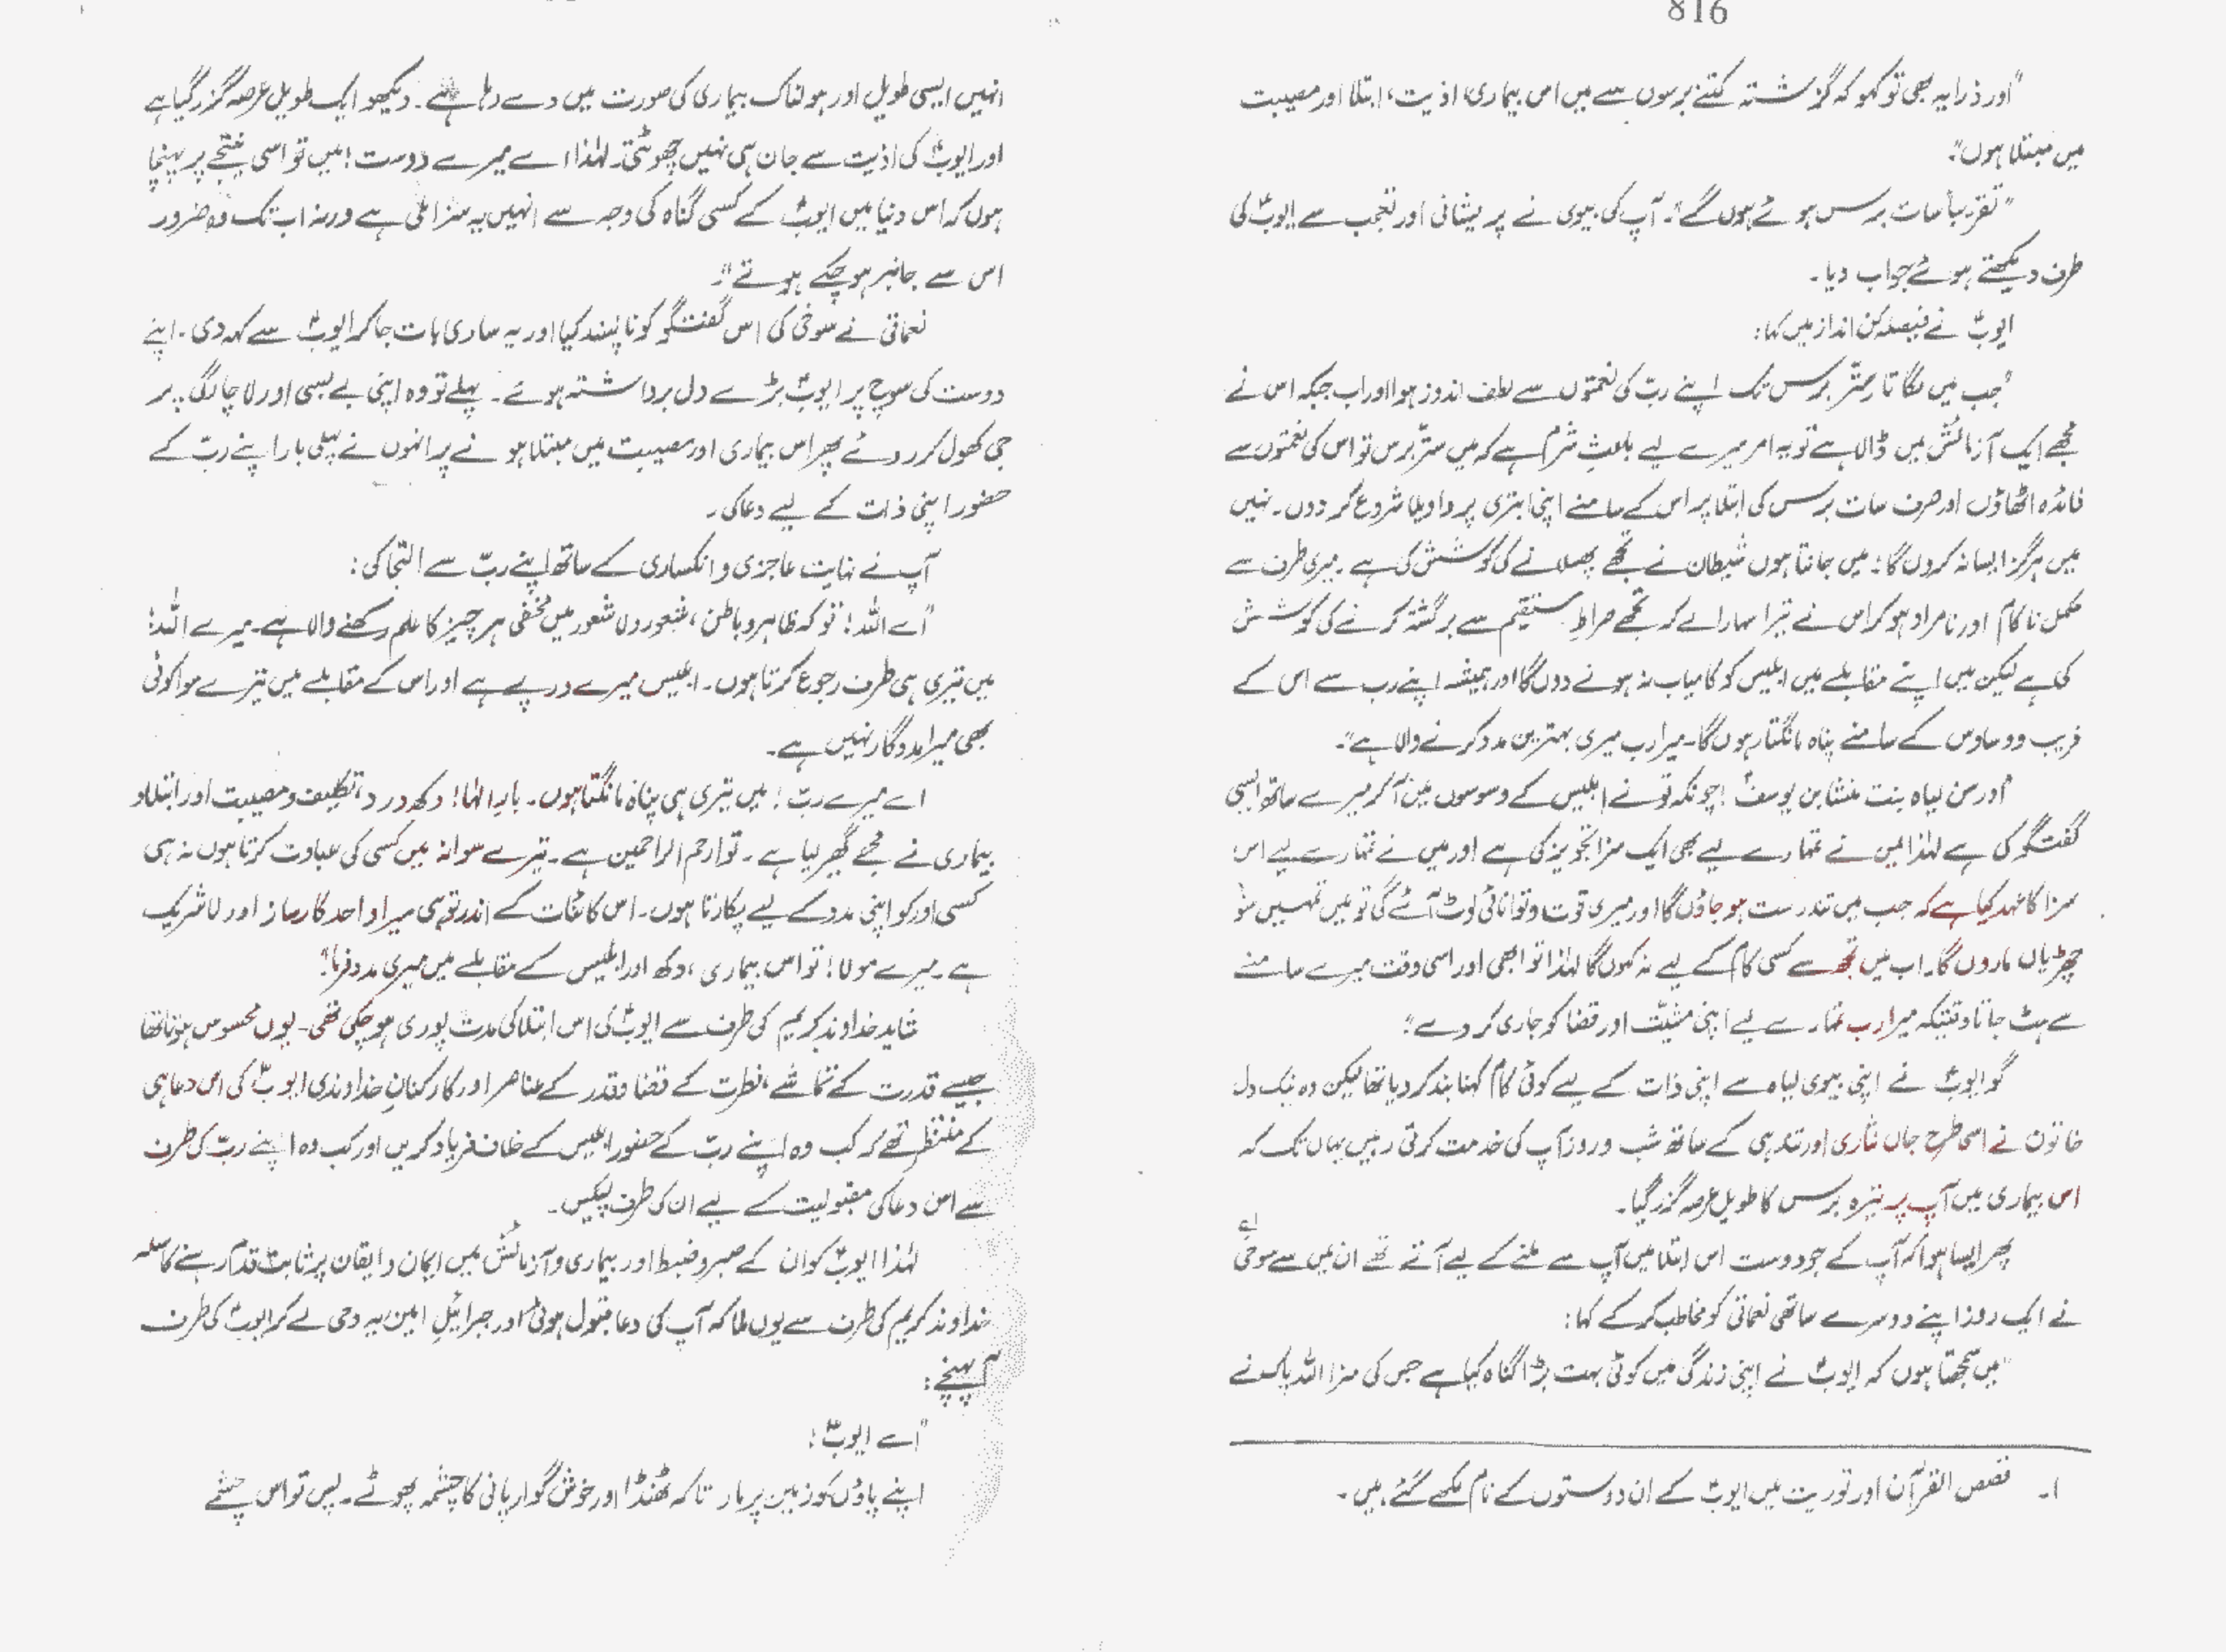 816
"اور ذرا یہ بھی تو کہو کہ گزشتہ کتنے برسوں سے میں اس بیماری، اذیت، ابتلا اور مصیبت
میں مبتلا ہوں"۔
"تقریباً سات برس ہوئے ہوں گے"۔ آپ کی بیوی نے پریشانی اور تعجب سے ایوبؑ کی
طرف دیکھتے ہوئے جواب دیا۔
ایوبؑ نے فیصلہ کن انداز میں کہا:
"جب میں لگاتار ستّر برس تک اپنے ربّ کی نعمتوں سے لطف اندوز ہوا اور اب جبکہ اس نے
مجھے ایک آزمائش میں ڈالا ہے تو یہ امر میرے لیے باعثِ شرم ہے کہ میں ستّر برس تو اس کی نعمتوں سے
فائدہ اٹھاؤں اور صرف سات برس کی ابتلا پر اس کے سامنے اپنی ابتری پر واویلا شروع کر دوں۔ نہیں
میں ہرگز ایسا نہ کروں گا؛ میں جانتا ہوں شیطان نے تجھے پھسلانے کی کوشش کی ہے۔ میری طرف سے
مکمل ناکام اور نامراد ہو کر اس نے تیرا سہارا لے کر مجھے صراطِ مستقیم سے برگشتہ کرنے کی کوشش
کی ہے لیکن میں اپنے مقابلے میں ابلیس کو کامیاب نہ ہونے دوں گا اور ہمیشہ اپنے رب سے اس کے
فریب و وساوس کے سامنے پناہ مانگتا رہوں گا۔ میرا رب میری بہترین مدد کرنے والا ہے"۔
"اور سن لیاہ بنت منشا بن یوسفؑ! چونکہ تو نے ابلیس کے وسوسوں میں آ کر میرے ساتھ ایسی
گفتگو کی ہے لہٰذا میں نے تمہارے لیے بھی ایک سزا تجویز کی ہے اور میں نے تمہارے لیے اس
سزا کا عہد کیا ہے کہ جب میں تندرست ہو جاؤں گا اور میری قوت و توانائی لوٹ آئے گی تو میں تمہیں سو
چھڑیاں ماروں گا۔ اب میں تجھ سے کسی کام کے لیے نہ کہوں گا لہٰذا تو ابھی اور اسی وقت میرے سامنے
سے ہٹ جا تاوقتیکہ میرا رب تمہارے لیے اپنی مشیّت اور قضا کو جاری کر دے"۔
گو ایوبؑ نے اپنی بیوی لیاہ سے اپنی ذات کے لیے کوئی کام کہنا بند کر دیا تھا لیکن وہ نیک دل
خاتون نے اسی طرح جاں نثاری اور تندہی کے ساتھ شب و روز آپ کی خدمت کرتی رہیں یہاں تک کہ
اس بیماری میں آپ پر تیرہ برس کا طویل عرصہ گزر گیا۔
پھر ایسا ہوا کہ آپ کے جو دوست اس ابتلا میں آپ سے ملنے کے لیے آتے تھے ان میں سے سوخی ۱؎
نے ایک روز اپنے دوسرے ساتھی نعماتی کو مخاطب کر کے کہا:
"میں سمجھتا ہوں کہ ایوبؑ نے اپنی زندگی میں کوئی بہت بڑا گناہ کیا ہے جس کی سزا اللہ پاک نے
۱۔ قصص القرآن اور توریت میں ایوبؑ کے ان دوستوں کے نام لکھے گئے ہیں۔
انہیں ایسی طویل اور ہولناک بیماری کی صورت میں دے رہا ہے۔ دیکھو ایک طویل عرصہ گزر گیا ہے
اور ایوبؑ کی اذیت سے جان ہی نہیں چھوٹتی۔ لہٰذا اے میرے دوست! میں تو اسی نتیجے پر پہنچا
ہوں کہ اس دنیا میں ایوبؑ کے کسی گناہ کی وجہ سے انہیں یہ سزا ملی ہے ورنہ اب تک وہ ضرور
اس سے جانبر ہو چکے ہوتے"۔
نعماتی نے سوخی کی اس گفتگو کو ناپسند کیا اور یہ ساری بات جا کر ایوبؑ سے کہہ دی۔ اپنے
دوست کی سوچ پر ایوبؑ بڑے دل برداشتہ ہوئے۔ پہلے تو وہ اپنی بے بسی اور لاچارگی پر
جی کھول کر روئے پھر اس بیماری اور مصیبت میں مبتلا ہونے پر انہوں نے پہلی بار اپنے ربّ کے
حضور اپنی ذات کے لیے دعا کی۔
آپ نے نہایت عاجزی و انکساری کے ساتھ اپنے ربّ سے التجا کی:
"اے اللہ! تو کہ ظاہر و باطن، شعور و لاشعور میں مخفی ہر چیز کا علم رکھنے والا ہے۔ میرے اللہ!
میں تیری ہی طرف رجوع کرتا ہوں۔ ابلیس میرے درپے ہے اور اس کے مقابلے میں تیرے سوا کوئی
بھی میرا مددگار نہیں ہے۔
اے میرے ربّ! میں تیری ہی پناہ مانگتا ہوں۔ بارِ الٰہا! دکھ درد، تکلیف و مصیبت اور ابتلاء و
بیماری نے مجھے گھیر لیا ہے۔ تو ارحم الراحمین ہے۔ تیرے سوا نہ میں کسی کی عبادت کرتا ہوں نہ ہی
کسی اور کو اپنی مدد کے لیے پکارتا ہوں۔ اس کائنات کے اندر تو ہی میرا واحد کارساز اور لاشریک
ہے۔ میرے مولا! تو اس بیماری، دکھ اور ابلیس کے مقابلے میں میری مدد فرما"۔
شاید خداوند کریم کی طرف سے ایوبؑ کی اس ابتلا کی مدت پوری ہو چکی تھی۔ یوں محسوس ہوتا تھا
جیسے قدرت کے تماشے، فطرت کے قضا و قدر کے عناصر اور کارکنانِ خداوندی ایوبؑ کی اس دعا ہی
کے منتظر تھے کہ کب وہ اپنے ربّ کے حضور ابلیس کے خلاف فریاد کریں اور کب وہ اپنے ربّ کی طرف
سے اس دعا کی مقبولیت کے لیے ان کی طرف لپکیں۔
لہٰذا ایوبؑ کو ان کے صبر و ضبط اور بیماری و آزمائش میں ایمان و ایقان پر ثابت قدم رہنے کا صلہ
خداوند کریم کی طرف سے یوں ملا کہ آپ کی دعا قبول ہوئی اور جبرائیلِ امین یہ وحی لے کر ایوبؑ کی طرف
آ پہنچے:
"اے ایوبؑ!
اپنے پاؤں کو زمین پر مار تاکہ ٹھنڈا اور خوش گوار پانی کا چشمہ پھوٹے۔ پس تو اس چشمے